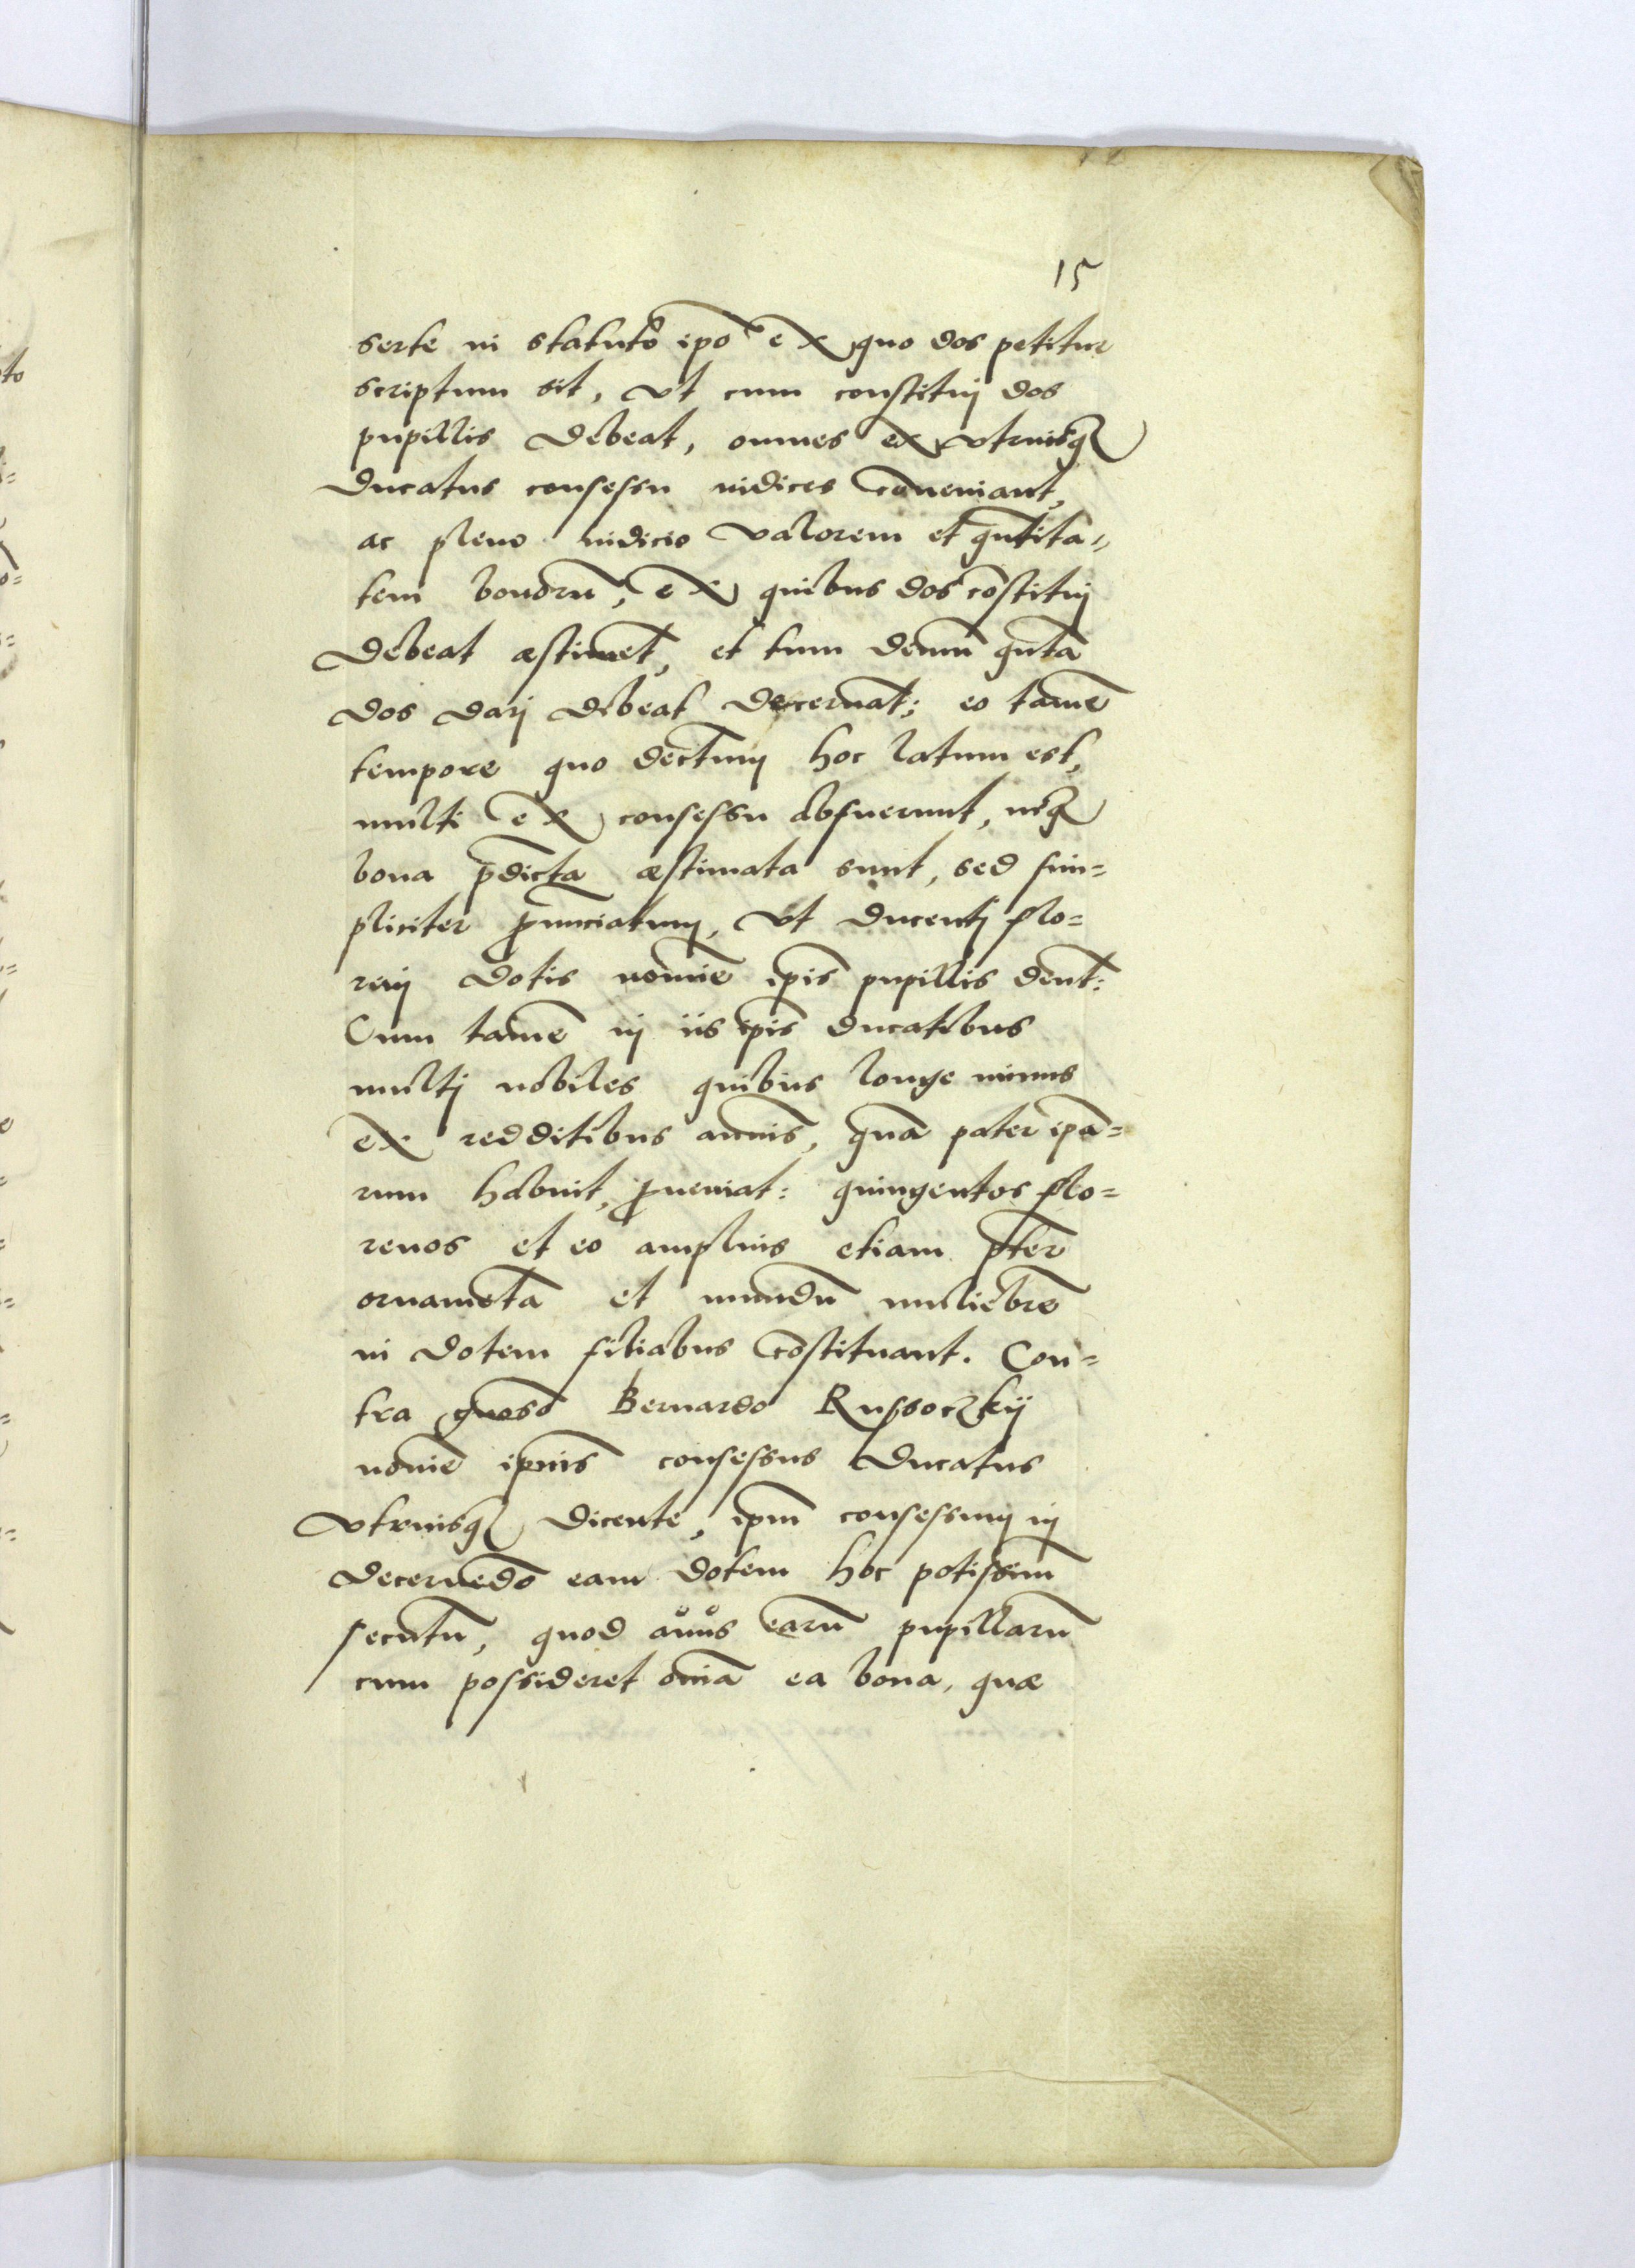 15
serte in statuto ipō ex quo dos petitur
scriptum sit, vt cum constituj dos
pupillis debeat, omnes ex vtriusq
Ducatus consessu iudices cōueniant,
ac pleno iudicio valorem et qntita=
tem bonorū, ex quibus dos cōstituj
debeat æstiment, et tum demū qntā
dos darj debeat decernāt; eo tamē
tempore quo dectum hoc latum est,
multi ex consessu absuerunt, neq
bona pdicta æstimata sunt, sed sim=
pliciter pnunciatum, vt ducentj flo=
renj dotis nomīe ipīs pupillis dent:
Cum tamē in iis ipīs ducatibus
multj nobiles quibus longe minus
ex redditibus annuis, quā pater ipā=
rum habuit, pueniat: quingentos flo=
renos et eo amplius etiam pter
ornamētā et mundū muliebrē
in dotem filiabus cōstituant. Con=
tra gnoso Bernardo Russoczkij
nomīe ipīus consessus Ducatus
vtriusq dicente, ipm consessum in
decernēdo eam dotem hoc potissimū
secutū, quod auus earū pupillarū
cum possideret oīnia ea bona, quæ